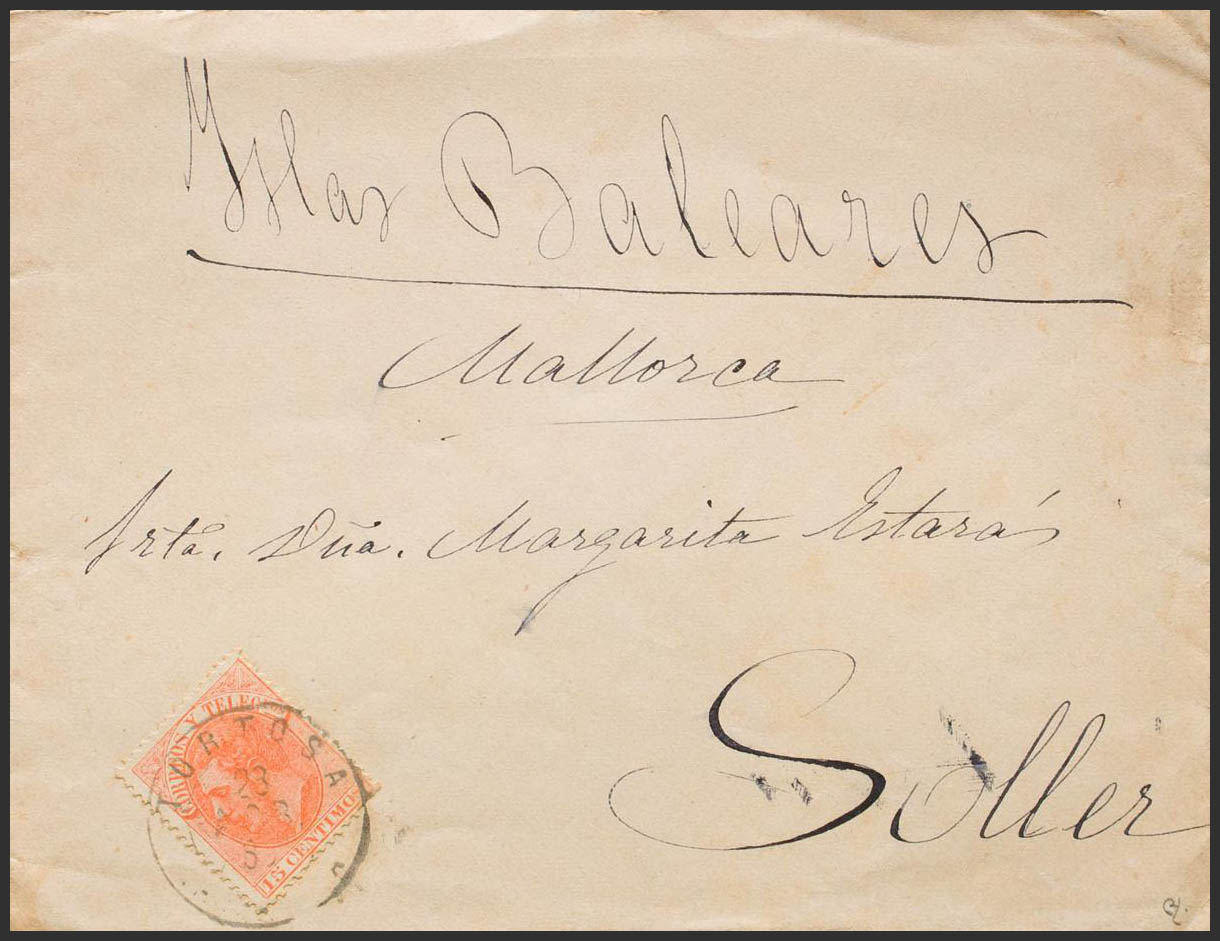 Yslas Baleares
Mallorca
Srta. Dña. Margarita Estarás
Soller
CORREOS Y TELEGS
15 CENTIMOS
TORTOSA
23